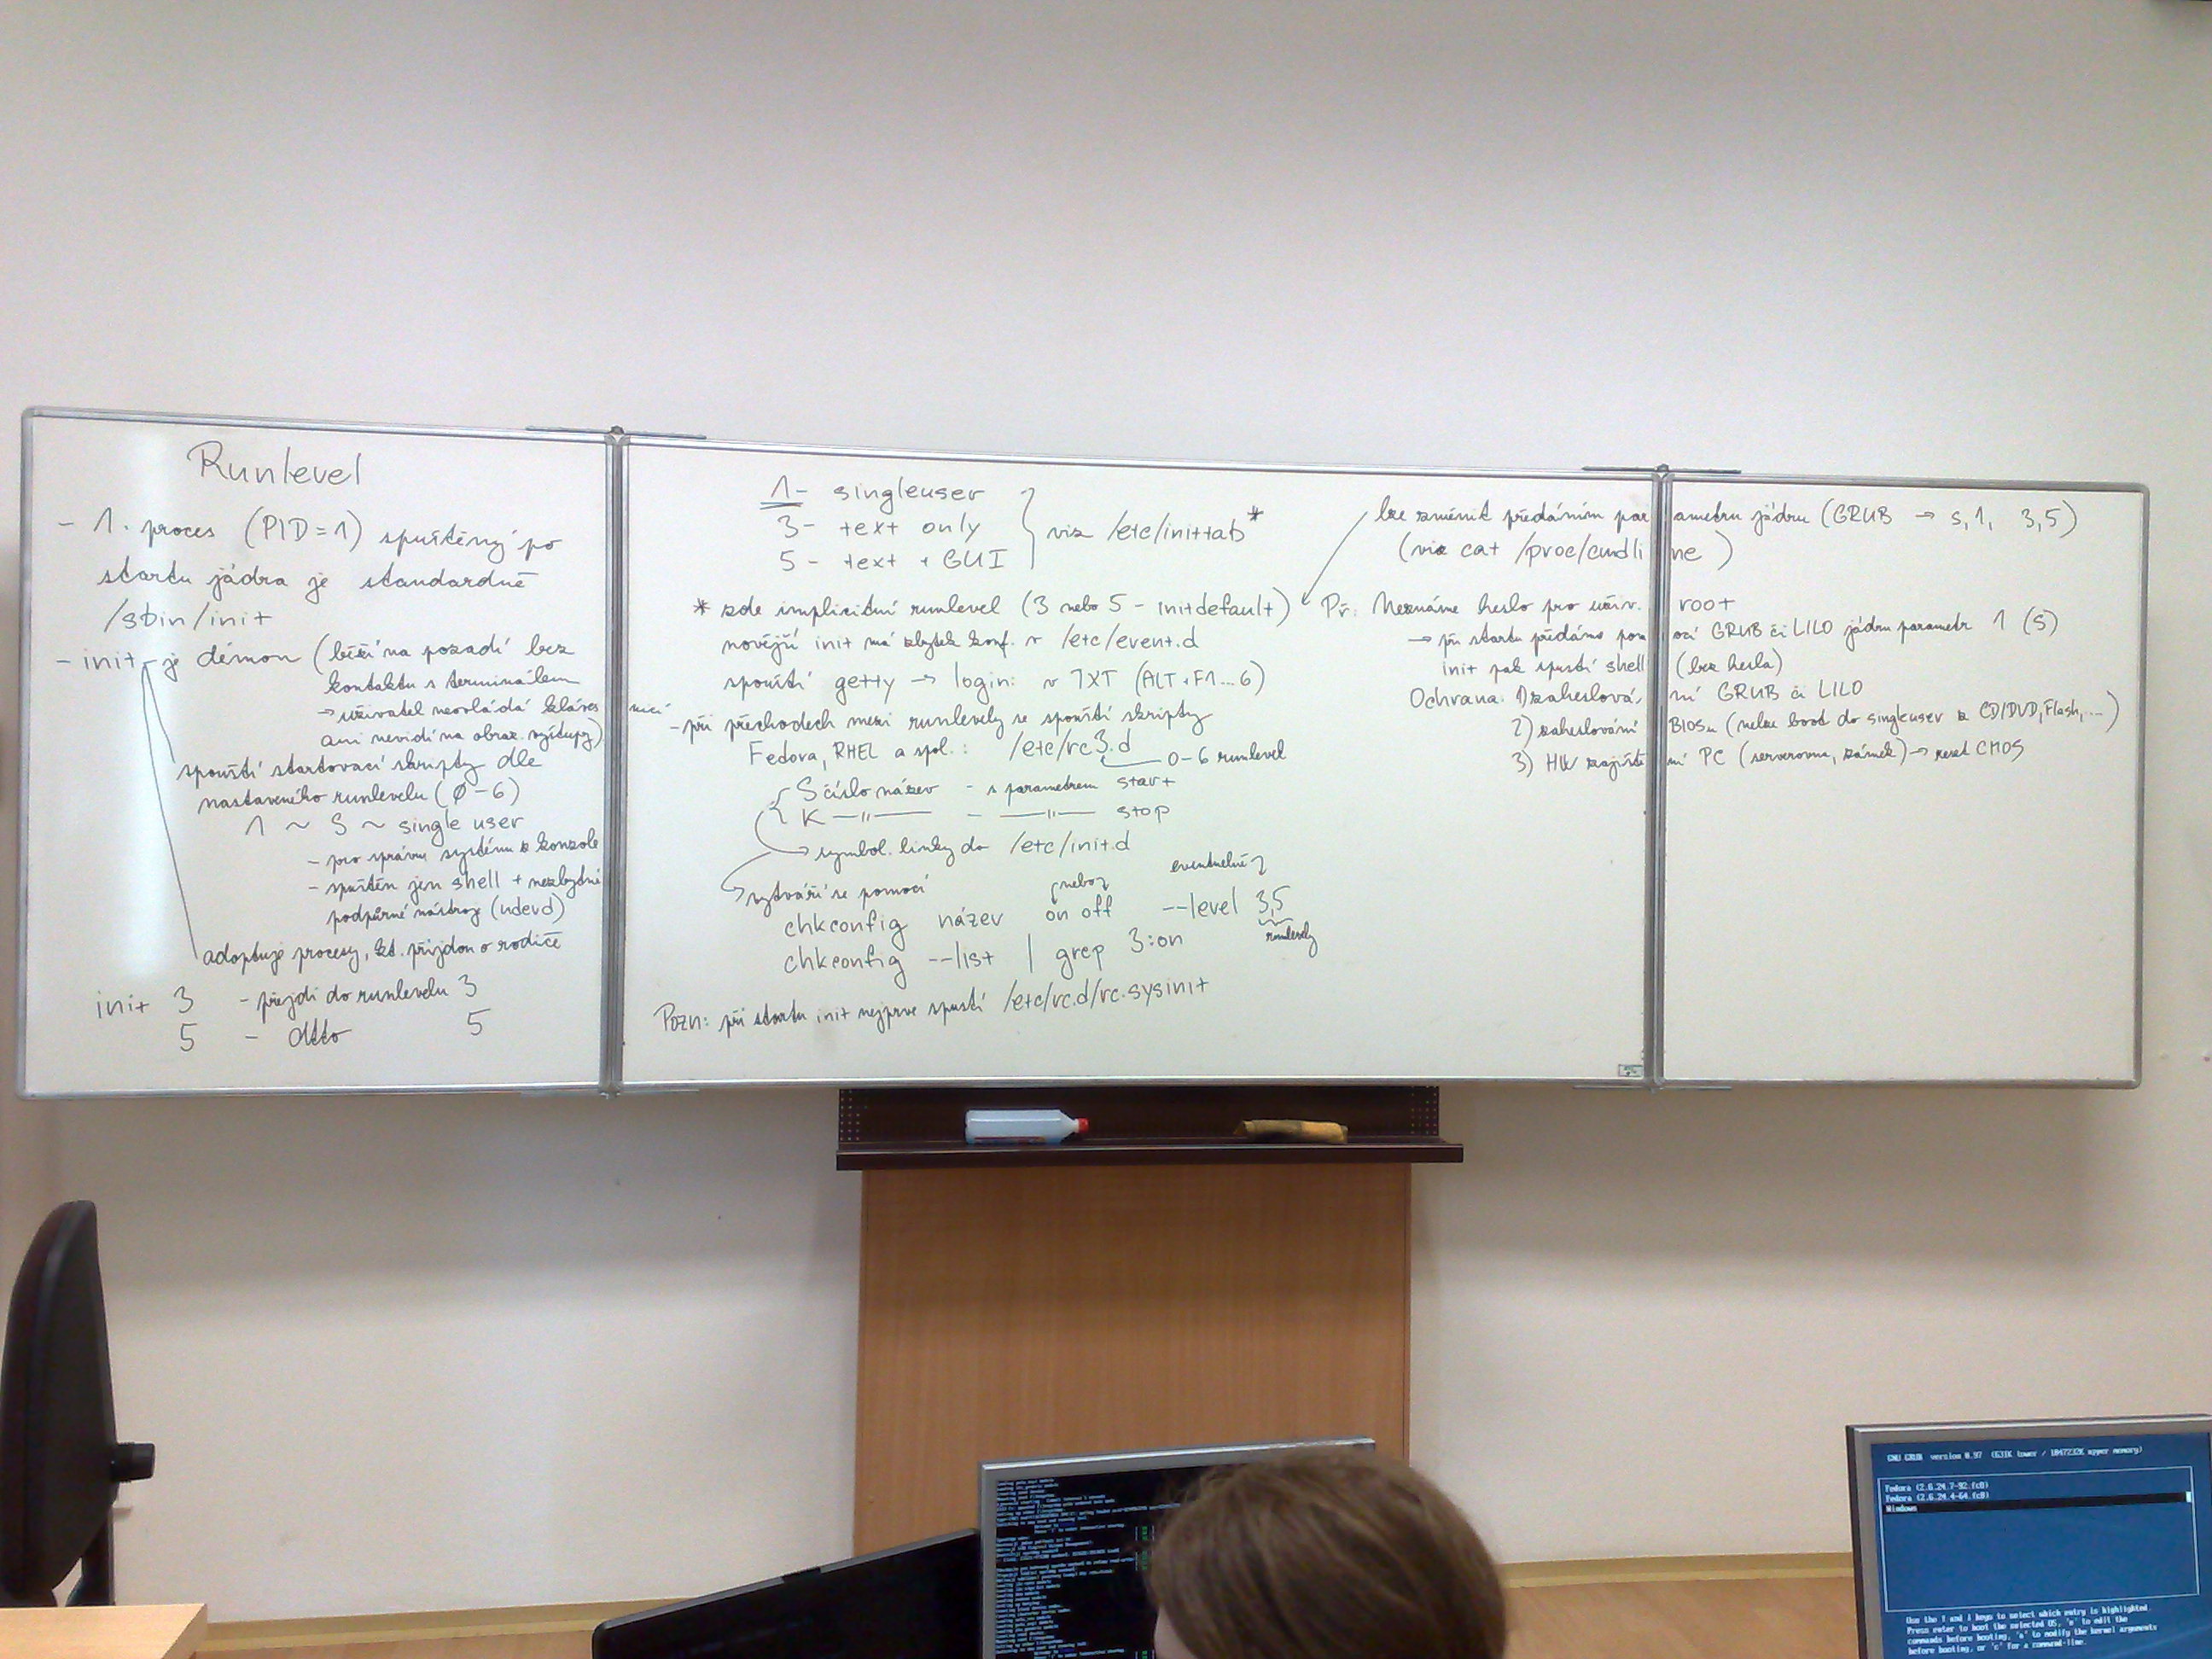 Runlevel
- 1. proces (PID=1) spuštěný po
startu jádra je standardně
/sbin/init
- init - je démon (běží na pozadí bez
kontaktu s terminálem
→ uživatel neovládá klávesnicí
ani nevidí na obraz. výstupy)
spouští startovací skripty dle
nastaveného runlevelu (0-6)
1 ~ S ~ single user
- pro správu systému z konzole
- spuštěn jen shell + nezbytné
podpůrné nástroje (udevd)
adoptuje procesy, kt. přijdou o rodiče
init 3 - přejdi do runlevelu 3
5 - dtto 5
1- singleuser
3- text only
5- text + GUI
viz /etc/inittab*
* zde implicitní runlevel (3 nebo 5 - initdefault)
novější init má zbytek konf. v /etc/event.d
spouští getty → login: v TXT (ALT+F1...6)
- při přechodech mezi runlevely se spouští skripty
Fedora, RHEL a spol.: /etc/rc3.d
0-6 runlevel
S číslo název - s parametrem start
K —"— - —"— stop
→ symbol. linky do /etc/init.d
vytváří se pomocí
nebo
eventuelně
chkconfig název on off --level 3,5
runlevely
chkconfig --list | grep 3:on
Pozn: při startu init nejprve spustí /etc/rc.d/rc.sysinit
lze změnit předáním parametru jádru (GRUB → s,1, 3,5)
(viz cat /proc/cmdline)
Př: Neznáme heslo pro uživ. root
→ při startu předáme pomocí GRUB či LILO jádru parametr 1 (S)
init pak spustí shell (bez hesla)
Ochrana: 1) zaheslování GRUB či LILO
2) zaheslování BIOSu (nelze boot do singleuser z CD/DVD, Flash, ...)
3) HW zajištění PC (serverovna, zámek) → reset CMOS
GNU GRUB version 0.97 (631K lower / 1047232K upper memory)
Fedora (2.6.24.7-92.fc8)
Fedora (2.6.24.4-64.fc8)
Windows
Use the ↑ and ↓ keys to select which entry is highlighted.
Press enter to boot the selected OS, 'e' to edit the
commands before booting, 'a' to modify the kernel arguments
before booting, or 'c' for a command-line.